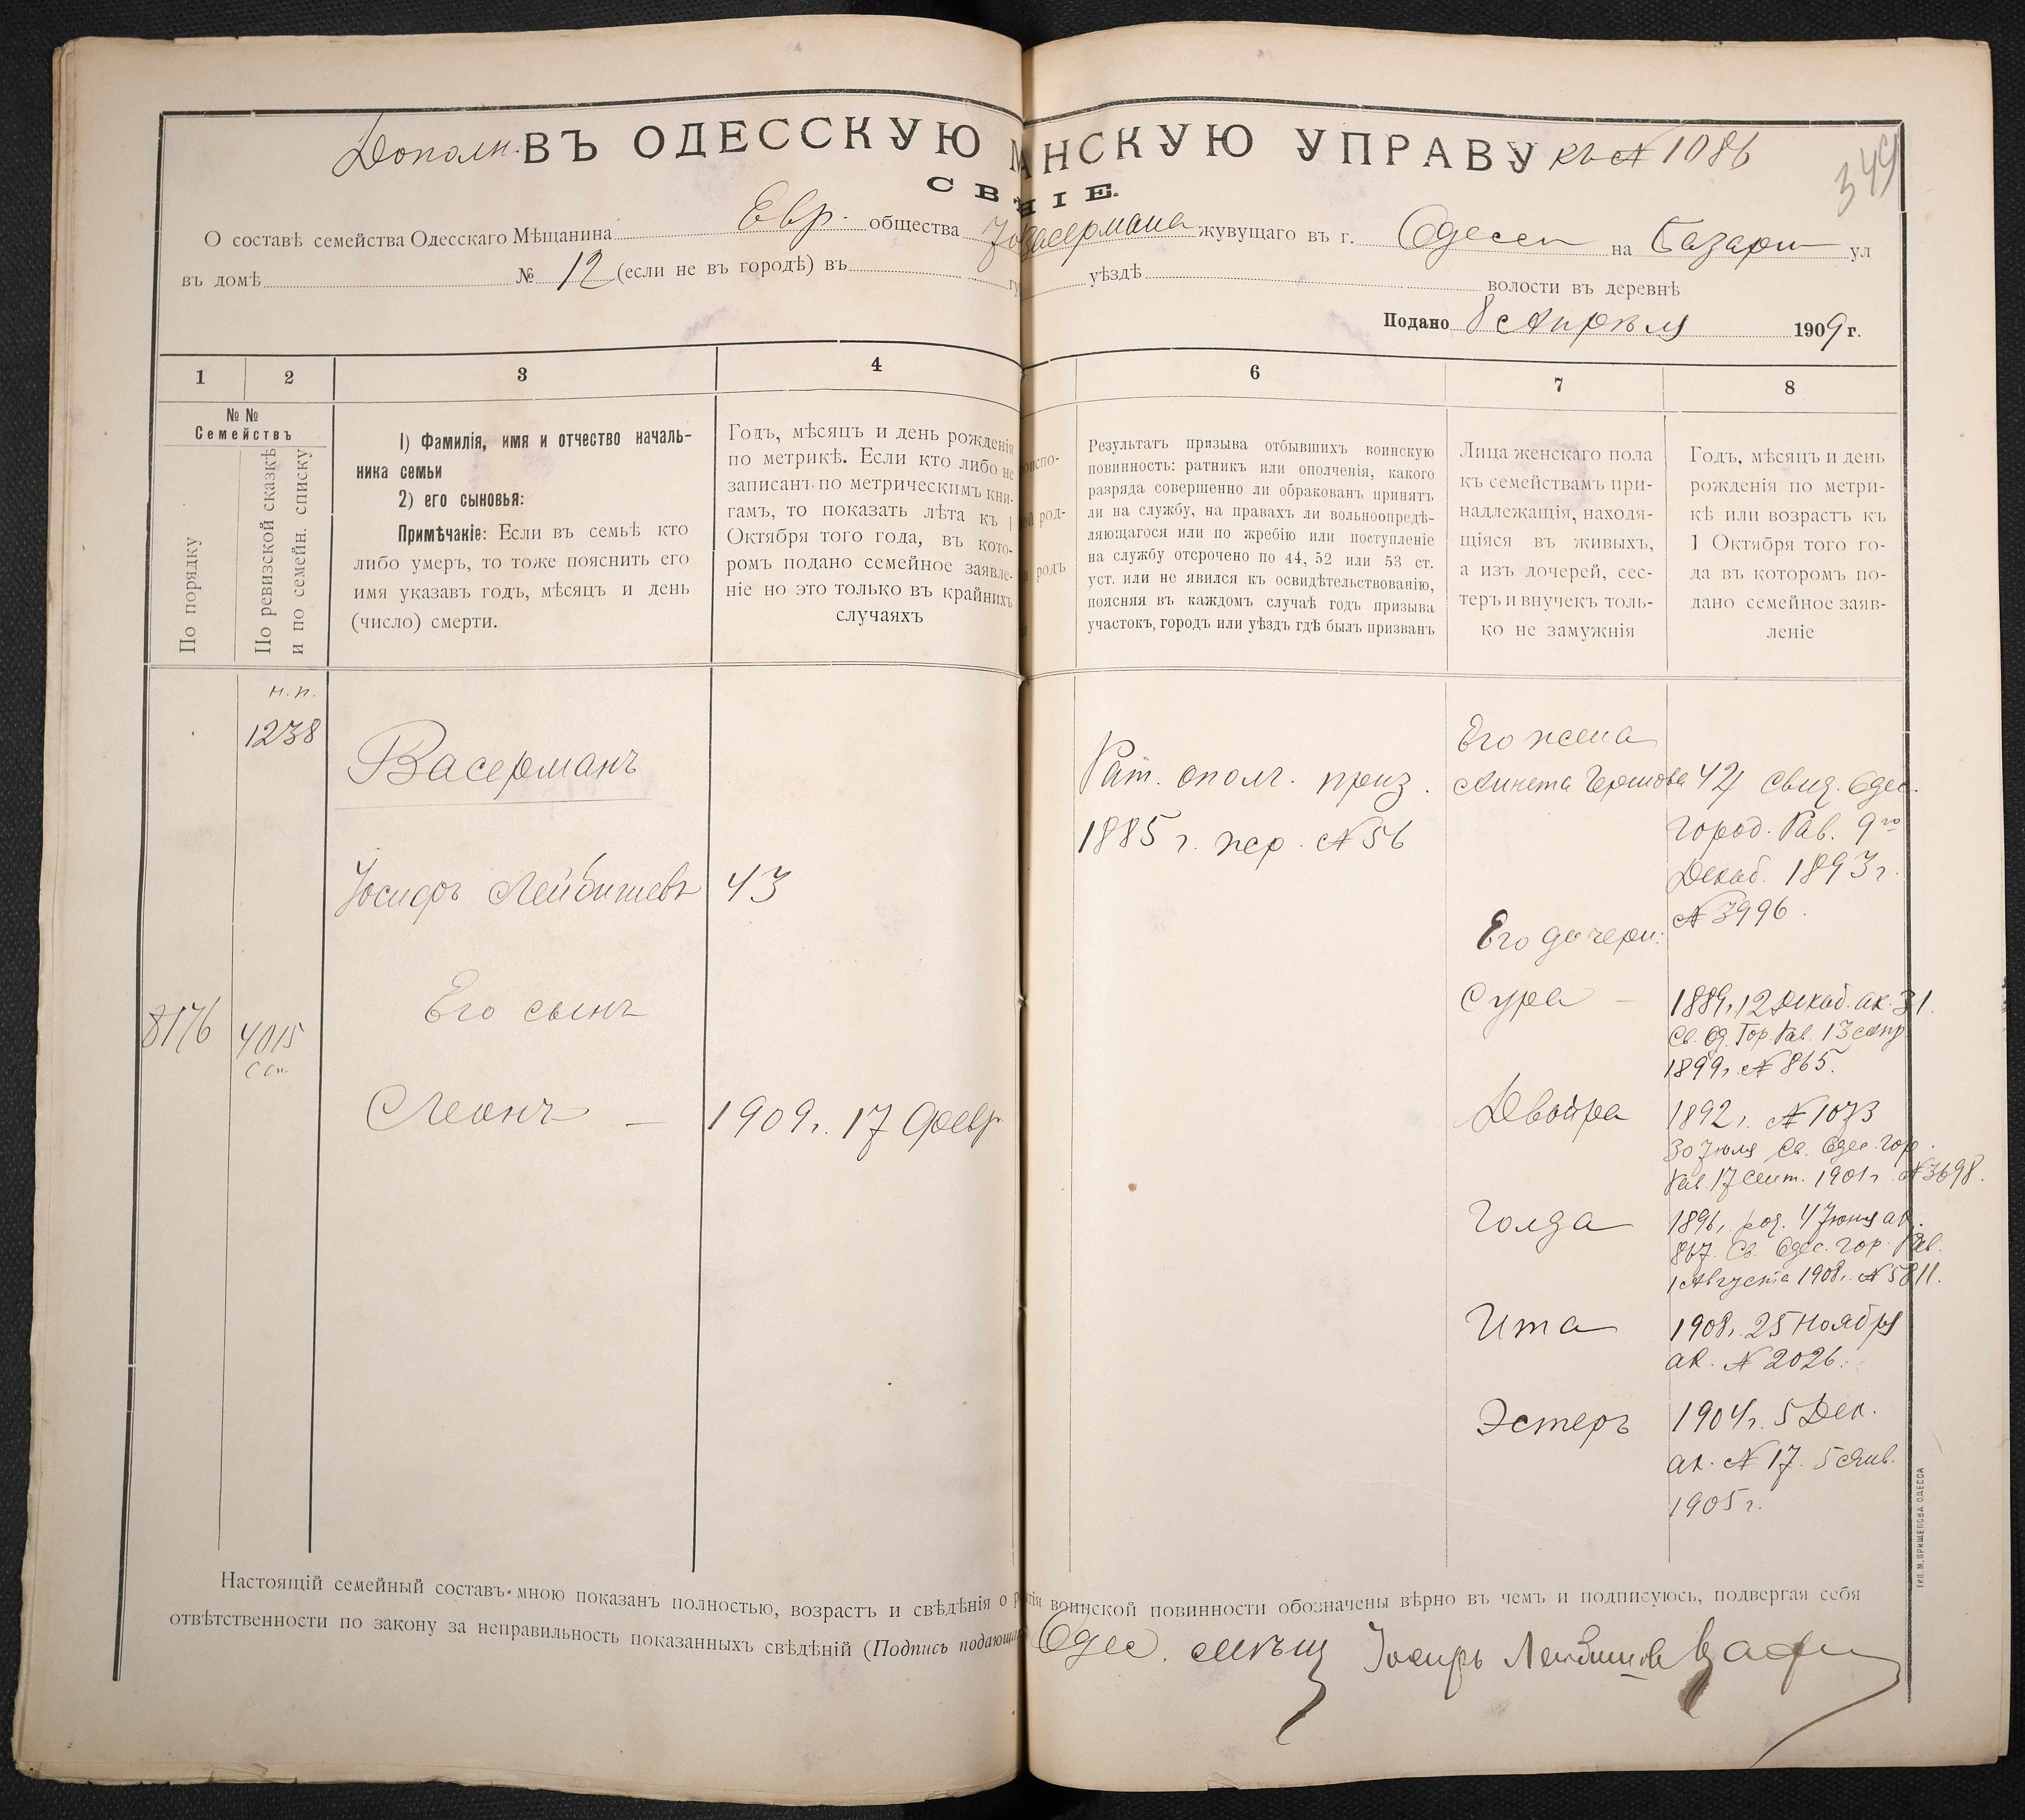 Дополн. ВЪ ОДЕССКУЮ АНСКУЮ УПРАВУ къ № 1086
349
СВ НІЕ.
О составѣ семейства Одесскаго Мѣщанина Евр. общества Васермана жувущаго въ г. Одессѣ на Базарн ул
въ домѣ № 12 (если не въ городѣ) въ уѣздѣ волости въ деревнѣ
Подано 8 Апрѣля 1909 г.
1 2 3 4 6 7 8
№ №
Семействъ
По порядку
По ревизской сказкѣ
и по семейн. списку
1) Фамилія, имя и отчество началь-
ника семьи
2) его сыновья:
Примѣчаніе: Если въ семьѣ кто
либо умеръ, то тоже пояснить его
имя указавъ годъ, мѣсяцъ и день
(число) смерти.
Годъ, мѣсяцъ и день рожденія
по метрикѣ. Если кто либо не
записанъ по метрическимъ кни-
гамъ, то показать лѣта къ 1
Октября того года, въ кото-
ромъ подано семейное заявле-
ніе но это только въ крайнихъ
случаяхъ
Результатъ призыва отбывшихъ воинскую
повинность: ратникъ или ополченія, какого
разряда совершенно ли обракованъ принятъ
ли на службу, на правахъ ли вольноопредѣ-
ляющагося или по жребію или поступленіе
на службу отсрочено по 44, 52 или 53 ст.
уст. или не явился къ освидѣтельствованію,
поясняя въ каждомъ случаѣ годъ призыва
участокъ, городъ или уѣздъ гдѣ былъ призванъ
Лица женскаго пола
къ семействамъ при-
надлежащія, находя-
щіяся въ живыхъ,
а изъ дочерей, сес-
теръ и внучекъ толь-
ко не замужнія
Годъ, мѣсяцъ и день
рожденія по метри-
кѣ или возрастъ къ
1 Октября того го-
да въ которомъ по-
дано семейное заяв-
леніе
н.п.
1238
Васерманъ
Іосифъ Лейбишевъ 43
8176 4015
Его сынъ
Леонъ — 1909 г. 17 Февр
Рат. ополч. приз.
1885 г. жер. № 56
Его жена
Анета Гершова 42 Свид. Одес.
Город. Рав. 9го
Декаб. 1893 г.
№ 3996.
Его дочери:
Сура — 1889 г. 12 Декаб. ак. 31.
Св. Од. Гор. Рав. 13 Апр.
1899 г. № 865.
Двойра 1892 г. № 1073
30 Іюля Св. Одес. гор.
Рав. 17 Сент. 1901 г. № 3698.
Голда 1896 г. род. 4 Іюня ак.
867. Св. Одес. гор. Рав.
1 Августа 1908 г. № 5811.
Ита 1908 г. 25 Ноября
ак. № 2026.
Эстеръ 1904 г. 5 Дек.
ак. № 17. 5 Янв.
1905 г.
Настоящій семейный составъ мною показанъ полностью, возрастъ и свѣдѣнія о воинской повинности обозначены вѣрно въ чемъ и подписуюсь, подвергая себя
отвѣтственности по закону за неправильность показанныхъ свѣдѣній (Подпись подающа Одес. мѣщ Іосифъ Лейбишев
ТИП. М. ПРИЩЕПОВА ОДЕССА